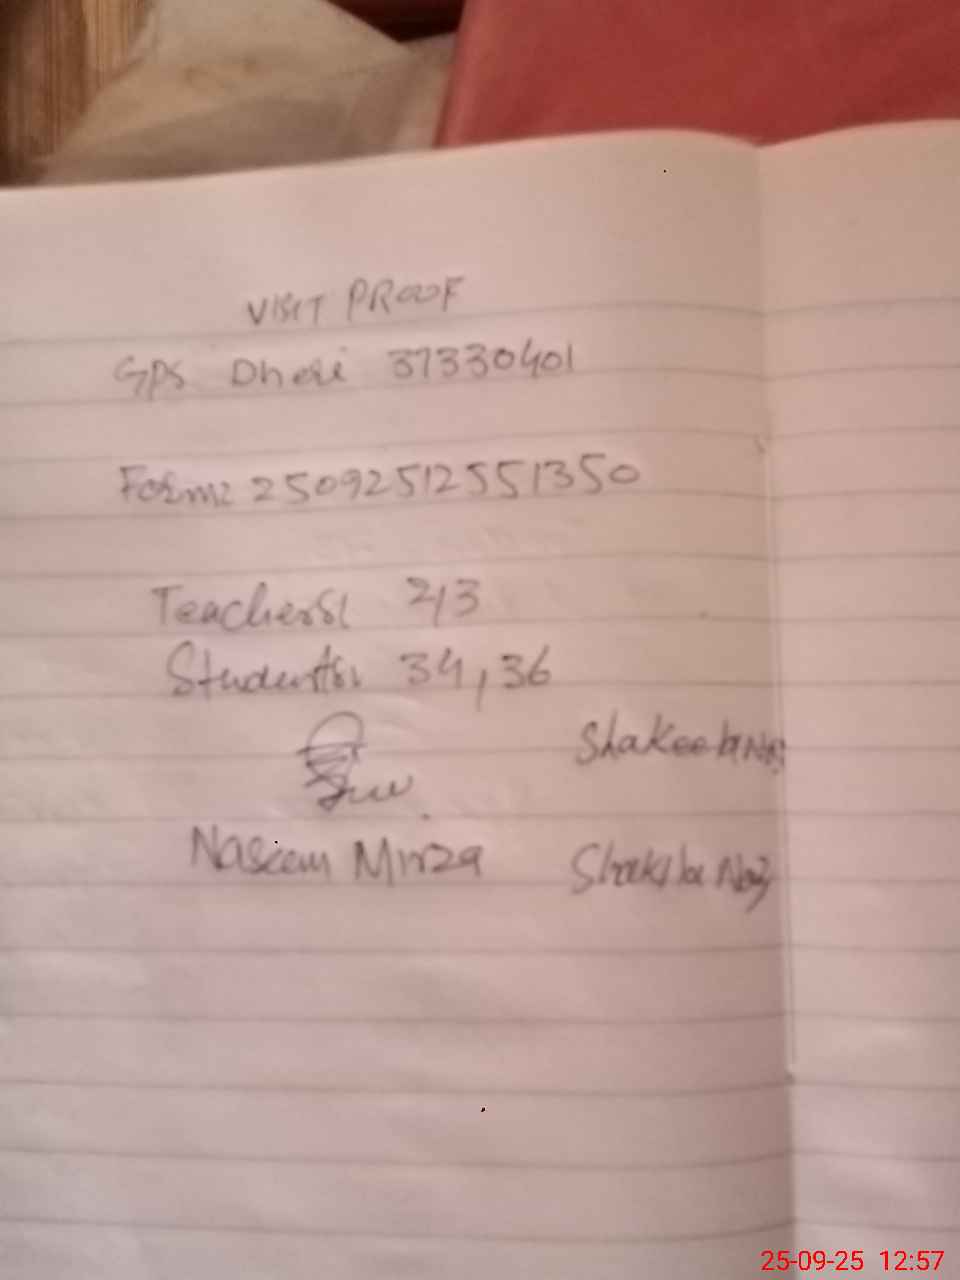 VISIT PROOF
GPS Dheri 37330401
Form: 25092512551350
Teachers: 2,3
Students: 34,36
Shakeela Naz
Naseem Mirza
Shakila Naz
25-09-25 12:57